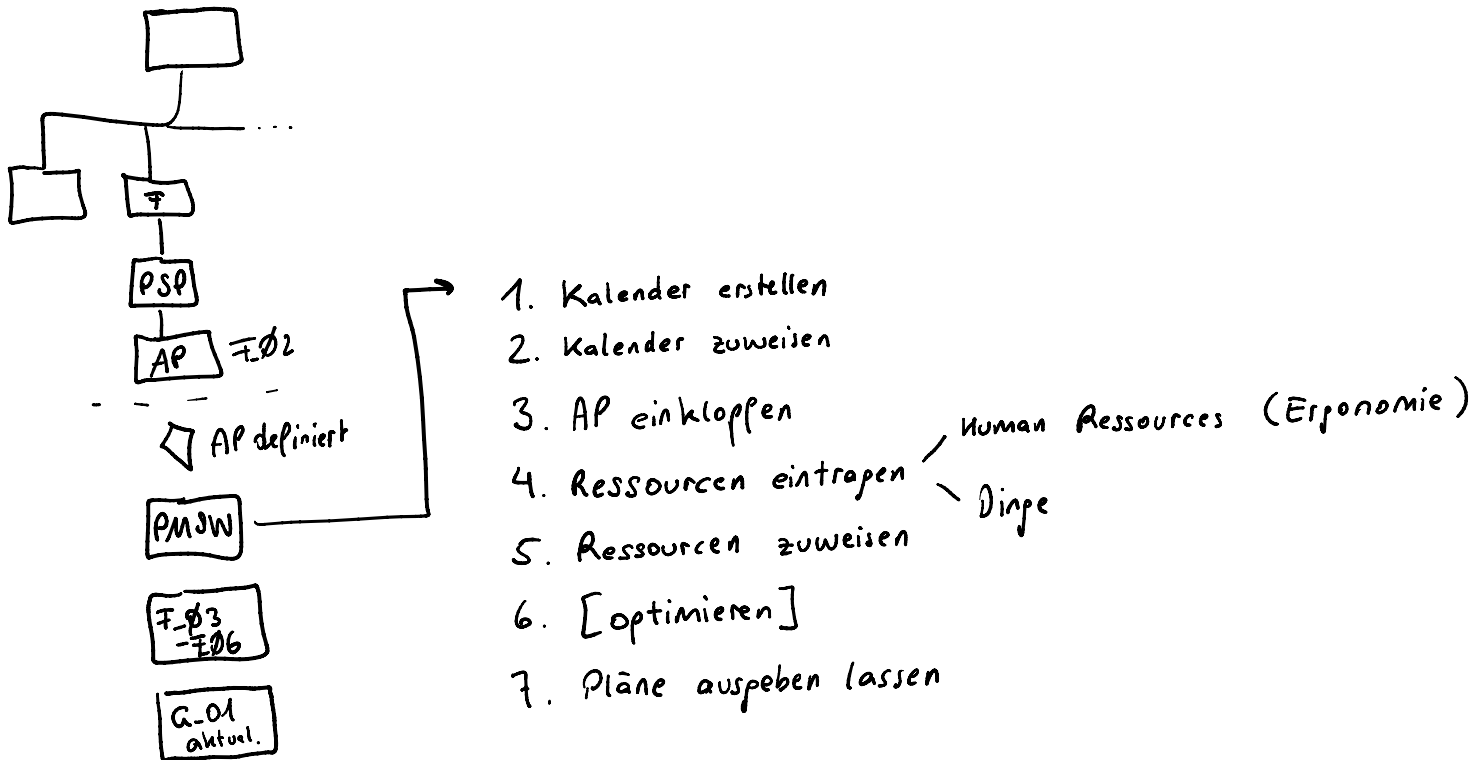 F
PSP
AP F_Ø2
AP definiert
PMSW
F_Ø3
-FØ6
G_01
aktual.
1. Kalender erstellen
2. Kalender zuweisen
3. AP einkloppen
4. Ressourcen eintragen
Human Ressources (Ergonomie)
Dinge
5. Ressourcen zuweisen
6. [optimieren]
7. Pläne ausgeben lassen